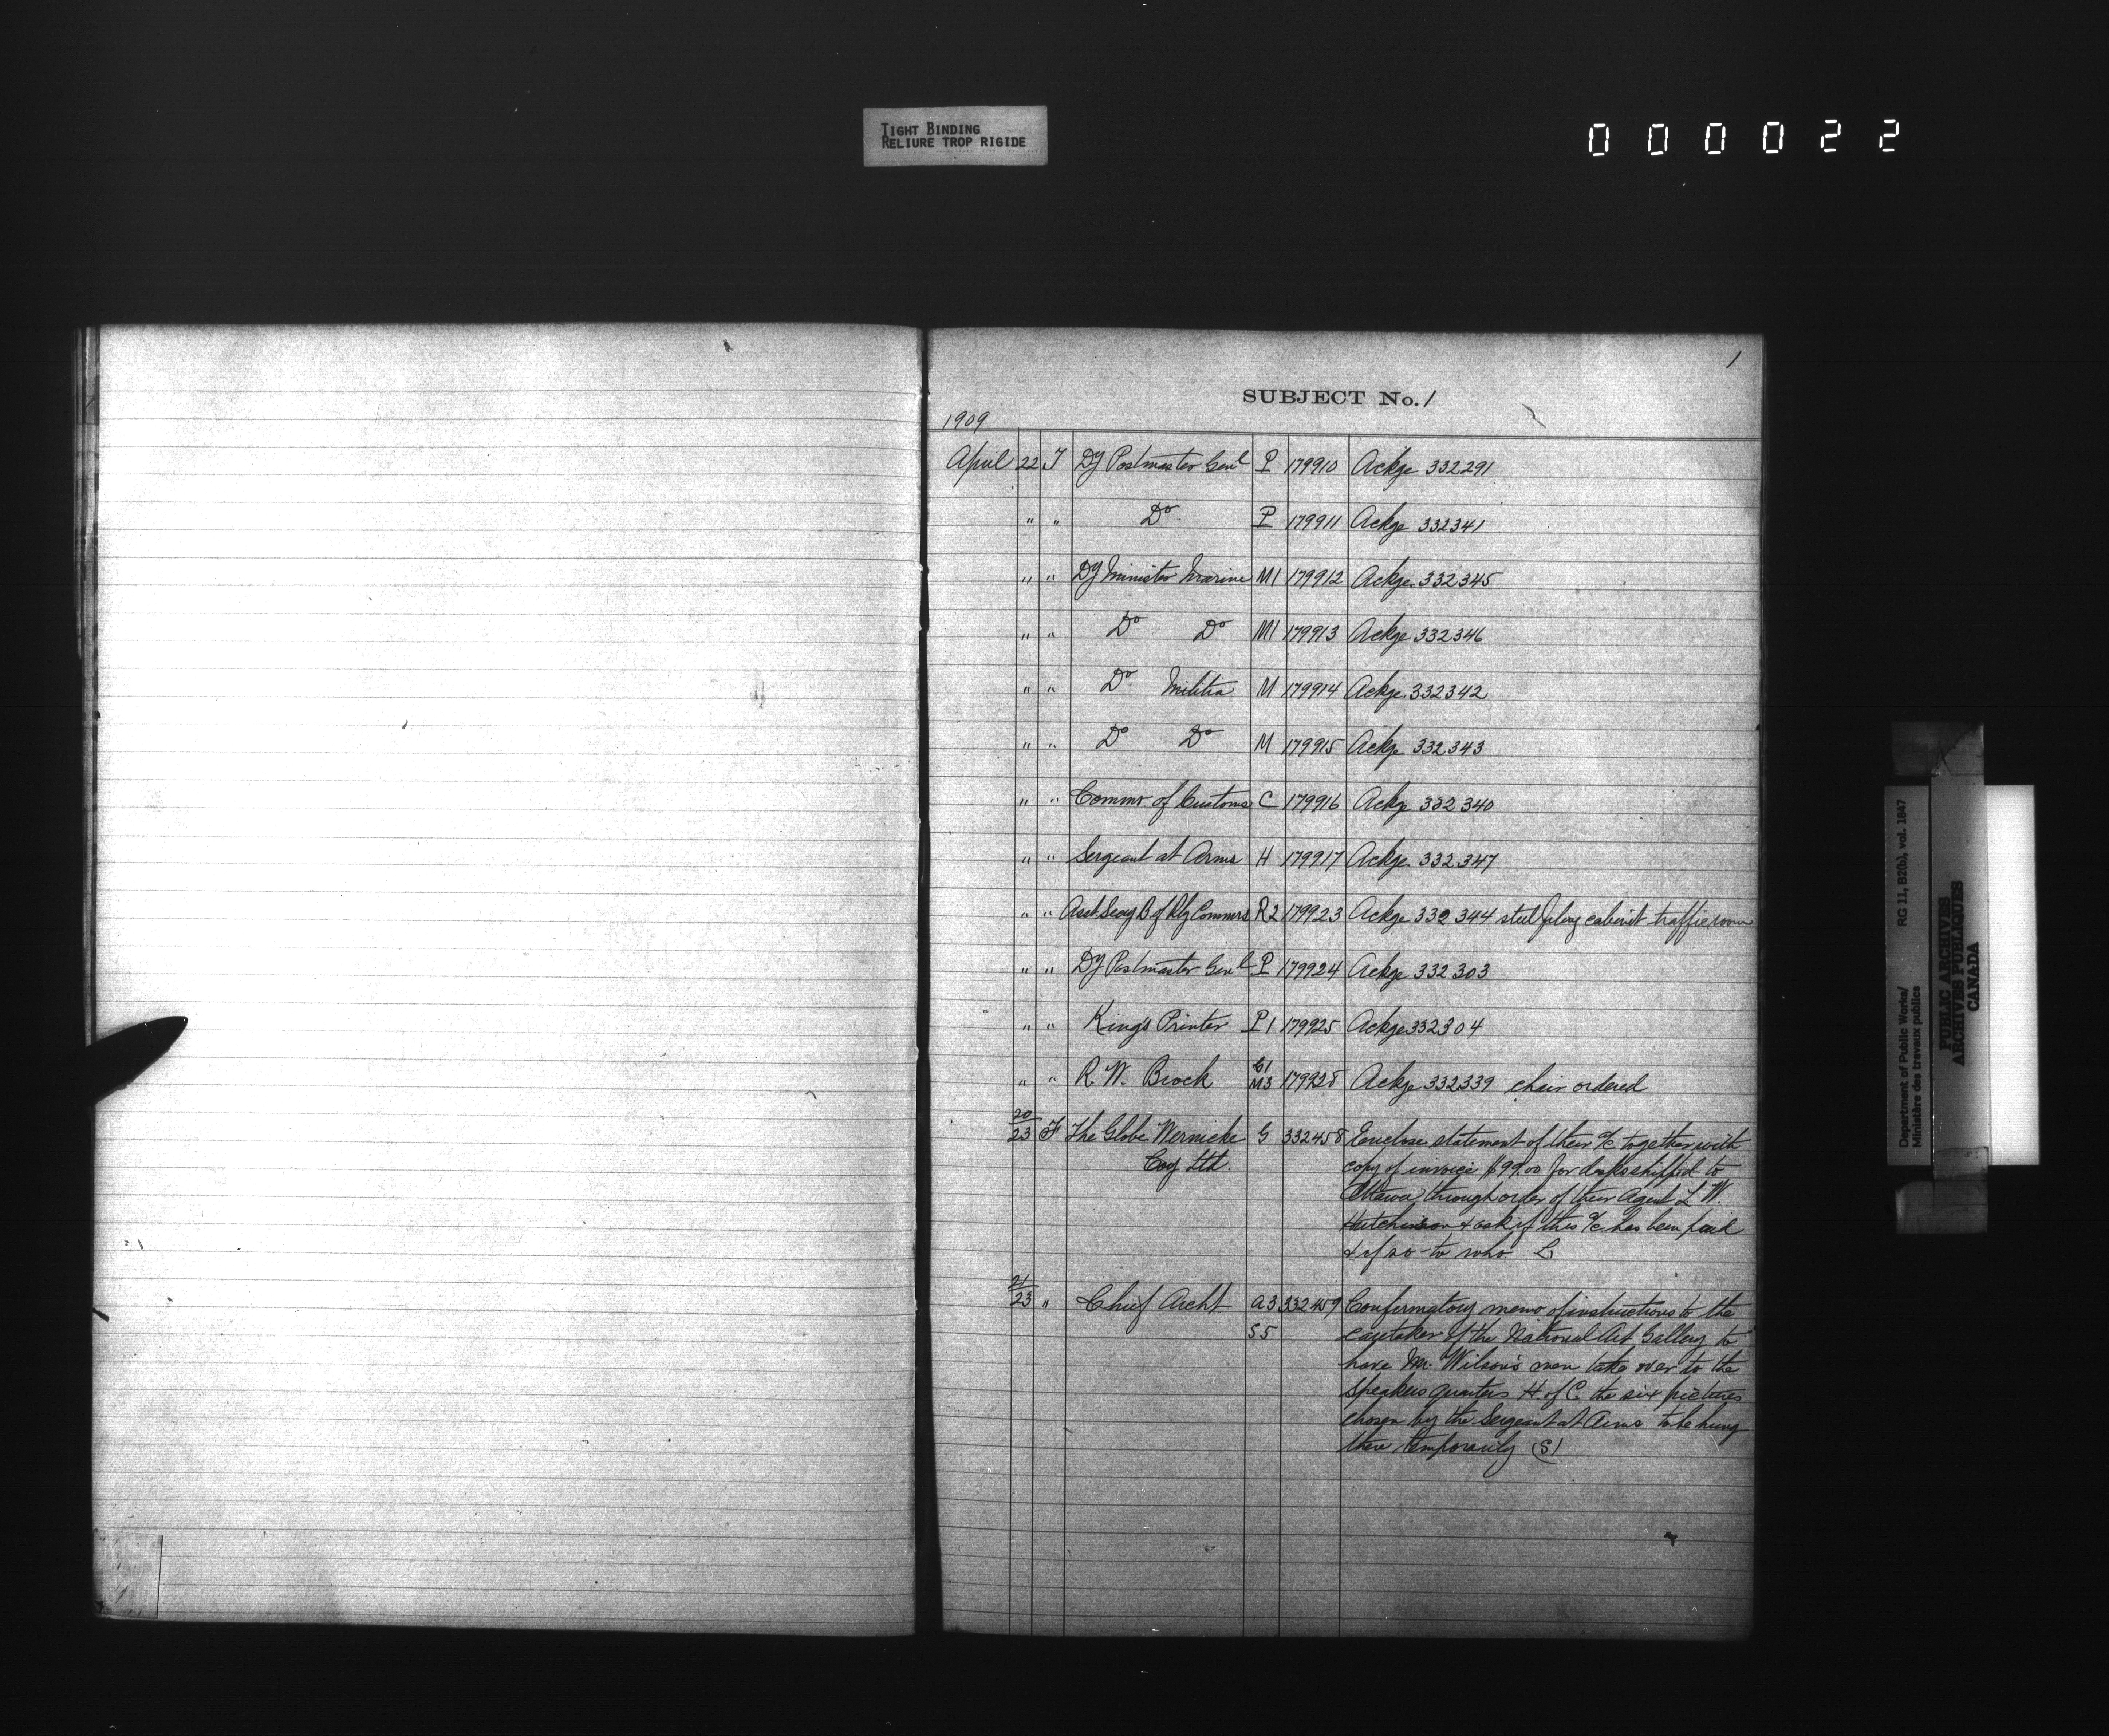 TIGHT BINDING
RELIURE TROP RIGIDE
000022
1
SUBJECT No. 1
1909
April 22 T Dy Postmaster Genl P 179910 Ackge 332291
" " Do P 179911 Ackge 332341
" " Dy Minister Marine M1 179912 Ackge 332345
" " Do Do M1 179913 Ackge 332346
" " Do Militia M 179914 Ackge 332342
" " Do Do M 179915 Ackge 332343
" " Commr of Customs C 179916 Ackge 332340
" " Sergeant at Arms H 179917 Ackge 332347
" " Asst Secy B of Rly Commrs R2 179923 Ackge 332344 steel filing cabinet traffic room
" " Dy Postmaster Genl P 179924 Ackge 332303
" " King's Printer P1 179925 Ackge 332304
" " R W. Brock G1 M3 179928 Ackge 332339 chair ordered
20/23 F The Globe Wernicke G 332458 Enclose statement of their a/c together with
Coy Ltd. copy of invoice $99.00 for desks shipped to
Ottawa through order of their Agent L W.
Hutchinson & ask if this a/c has been paid
& if so to who L
21/23 " Chief Archt A3 332459 Confirmatory memo of instructions to the
S5 caretaker of the National Art Gallery to
have Mr Wilson's men take over to the
Speakers quarters H of C the six pictures
chosen by the Sergeant at Arms to be hung
there temporarily (S)
Department of Public Works/ RG 11, B2(b), vol. 1847
Ministère des travaux publics
PUBLIC ARCHIVES
ARCHIVES PUBLIQUES
CANADA